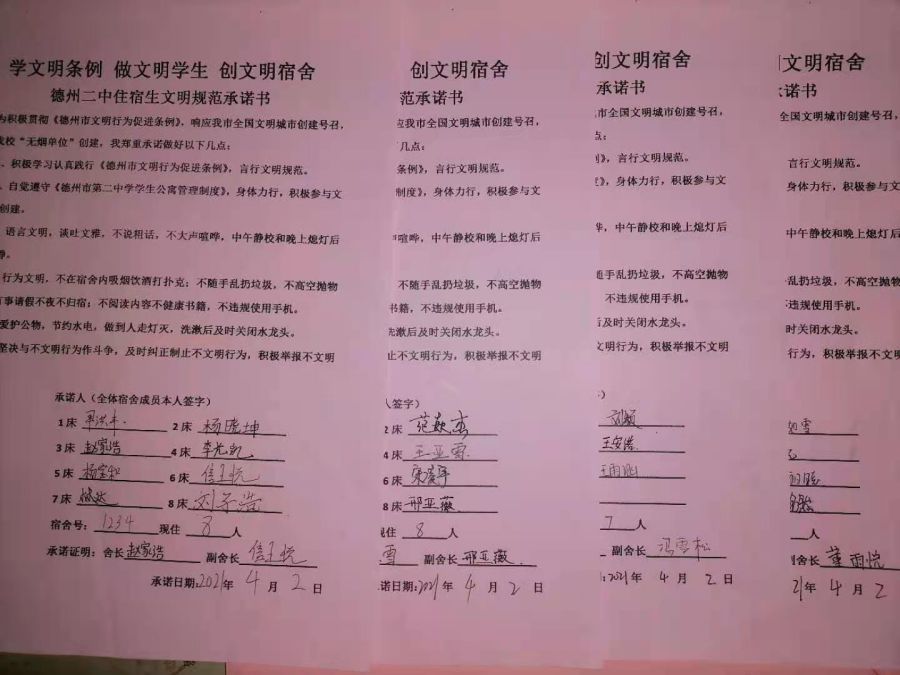 学文明条例 做文明学生 创文明宿舍
德州二中住宿生文明规范承诺书
为积极贯彻《德州市文明行为促进条例》，响应我市全国文明城市创建号召，
我校“无烟单位”创建，我郑重承诺做好以下几点：
、积极学习认真践行《德州市文明行为促进条例》，言行文明规范。
、自觉遵守《德州市第二中学学生公寓管理制度》，身体力行，积极参与文
创建。
语言文明，谈吐文雅，不说粗话，不大声喧哗，中午静校和晚上熄灯后
静。
行为文明，不在宿舍内吸烟饮酒打扑克；不随手乱扔垃圾，不高空抛物
有事请假不夜不归宿；不阅读内容不健康书籍，不违规使用手机。
爱护公物，节约水电，做到人走灯灭，洗漱后及时关闭水龙头。
坚决与不文明行为作斗争，及时纠正制止不文明行为，积极举报不文明
承诺人（全体宿舍成员本人签字）
1床 2床 杨晓坤
3床 赵家浩 4床
5床 6床
7床 8床 刘子浩
宿舍号：1234 现住 8 人
承诺证明：舍长 赵家浩 副舍长
承诺日期：2021年 4 月 2 日
创文明宿舍
范承诺书
应我市全国文明城市创建号召，
几点：
条例》，言行文明规范。
制度》，身体力行，积极参与文
喧哗，中午静校和晚上熄灯后
不随手乱扔垃圾，不高空抛物
书籍，不违规使用手机。
洗漱后及时关闭水龙头。
止不文明行为，积极举报不文明
人签字）
2床
4床 王亚雪
6床
8床 邢亚薇
现住 8 人
雪 副舍长 邢亚薇
诺日期：2021年 4 月 2 日
创文明宿舍
承诺书
市全国文明城市创建号召，
点：
》，言行文明规范。
度》，身体力行，积极参与文
哗，中午静校和晚上熄灯后
随手乱扔垃圾，不高空抛物
不违规使用手机。
后及时关闭水龙头。
文明行为，积极举报不文明
）
刘颖
7 人
副舍长 冯雪松
：2021年 4 月 2 日
文明宿舍
诺书
全国文明城市创建号召，
言行文明规范。
身体力行，积极参与文
中午静校和晚上熄灯后
乱扔垃圾，不高空抛物
违规使用手机。
时关闭水龙头。
行为，积极举报不文明
人
副舍长 董雨悦
21年 4 月 2